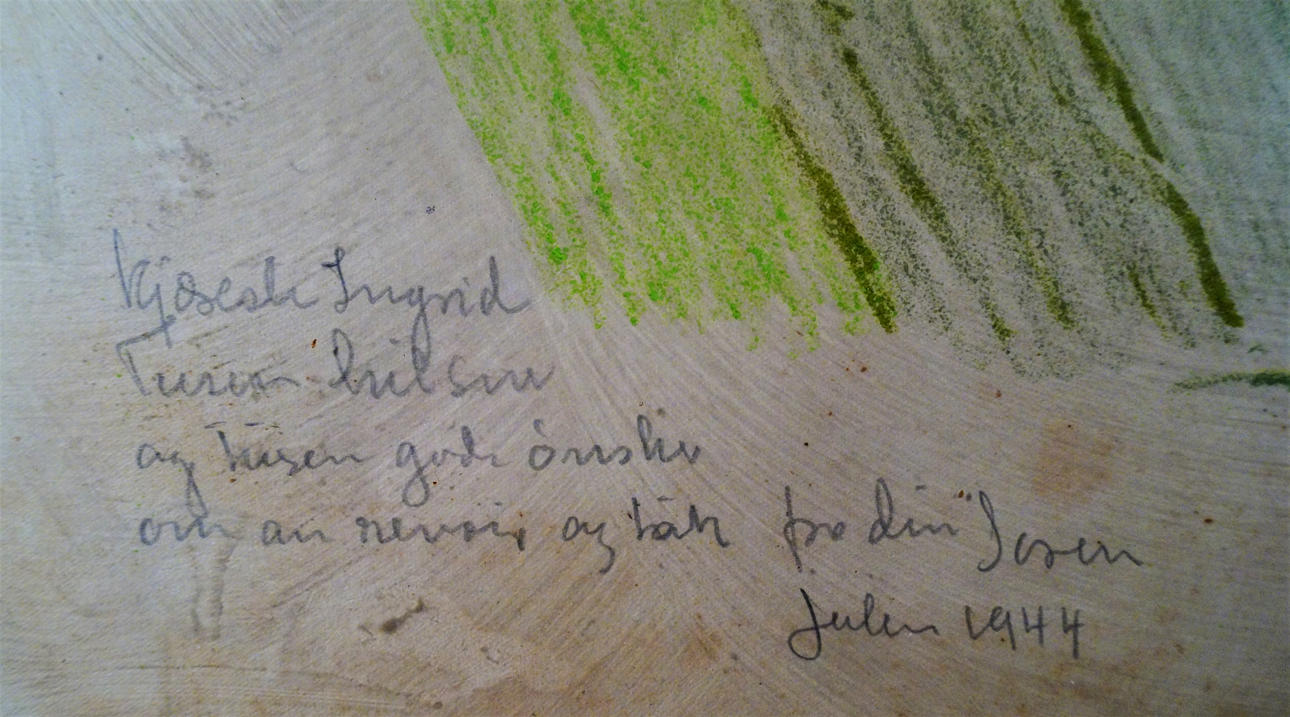 Kjæreste Ingrid
Tusen hilsner
og tusen gode ønsker
om au revoir og takk fra din
Julen 1944